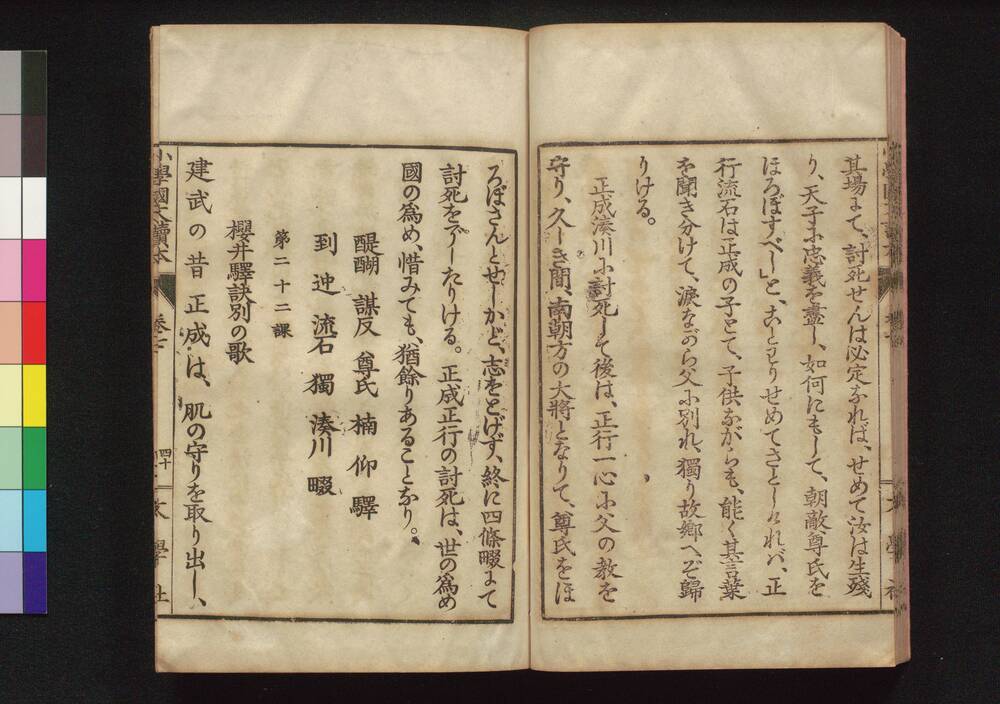 其場にて、討死せんは必定なれば、せめて汝は生殘
り、天子に忠義を盡し、如何にもして、朝敵尊氏を
ほろぼすべし」と、ことわりせめてさとしければ、正
行流石は正成の子とて、子供ながらも、能く其言葉
を聞き分けて、涙ながら父に別れ、獨り故郷へぞ歸
りける。
正成湊川に討死して後は、正行一心に父の教を
守り、久しき間、南朝方の大將となりて、尊氏をほ
ろぼさんとせしかど、志をとげず、終に四條畷にて
討死をぞしたりける。正成正行の討死は、世の爲め
國の爲め、惜みても、猶餘りあることなり。
醍醐 謀反 尊氏 楠 仰 驛
到 迎 流石 獨 湊川 畷
第二十二課
櫻井驛訣別の歌
建武の昔正成は、肌の守りを取り出し、
小學國文讀本 卷七 四十 文學社